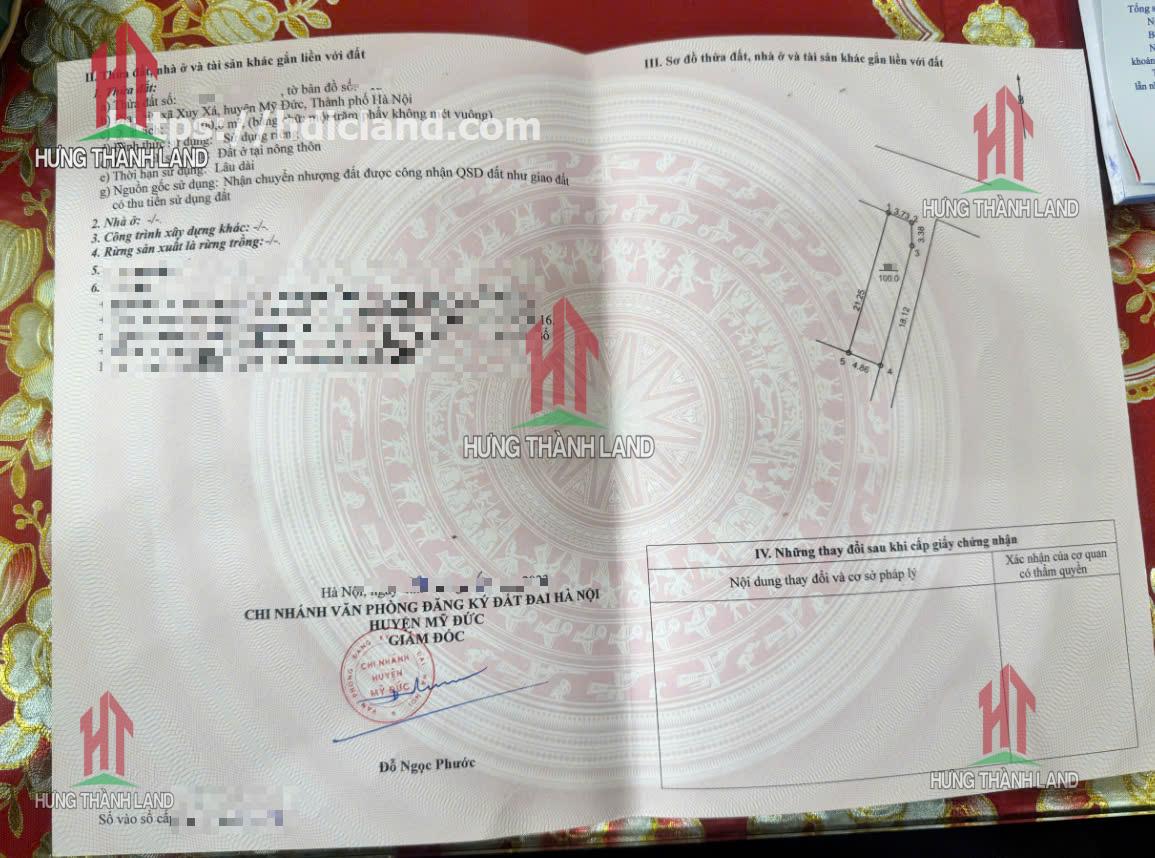 II. Thửa đất, nhà ở và tài sản khác gắn liền với đất
1. Thửa đất:
a) Thửa đất số: , tờ bản đồ số:
xã Xuy Xá, huyện Mỹ Đức, Thành phố Hà Nội
m² (bằng chữ: một trăm phẩy không mét vuông)
dụng: Sử dụng riêng
Đất ở tại nông thôn
e) Thời hạn sử dụng: Lâu dài
g) Nguồn gốc sử dụng: Nhận chuyển nhượng đất được công nhận QSD đất như giao đất
có thu tiền sử dụng đất
2. Nhà ở: -/-.
3. Công trình xây dựng khác: -/-.
4. Rừng sản xuất là rừng trồng: -/-.
5.
6.
16
Hà Nội, ngày
CHI NHÁNH VĂN PHÒNG ĐĂNG KÝ ĐẤT ĐAI HÀ NỘI
HUYỆN MỸ ĐỨC
GIÁM ĐỐC
CHI NHÁNH
HUYỆN
MỸ ĐỨC
Đỗ Ngọc Phước
Số vào sổ cấp
III. Sơ đồ thửa đất, nhà ở và tài sản khác gắn liền với đất
B
3.73
3.38
3
100.0
21.25
18.12
5
4.86
4
IV. Những thay đổi sau khi cấp giấy chứng nhận
Nội dung thay đổi và cơ sở pháp lý
Xác nhận của cơ quan
có thẩm quyền
Tổng s
khoản
lần n
https://hdicland.com
HƯNG THÀNH LAND
HƯNG THÀNH LAND
HƯNG THÀNH LAND
HƯNG THÀNH LAND
HƯNG THÀNH LAND